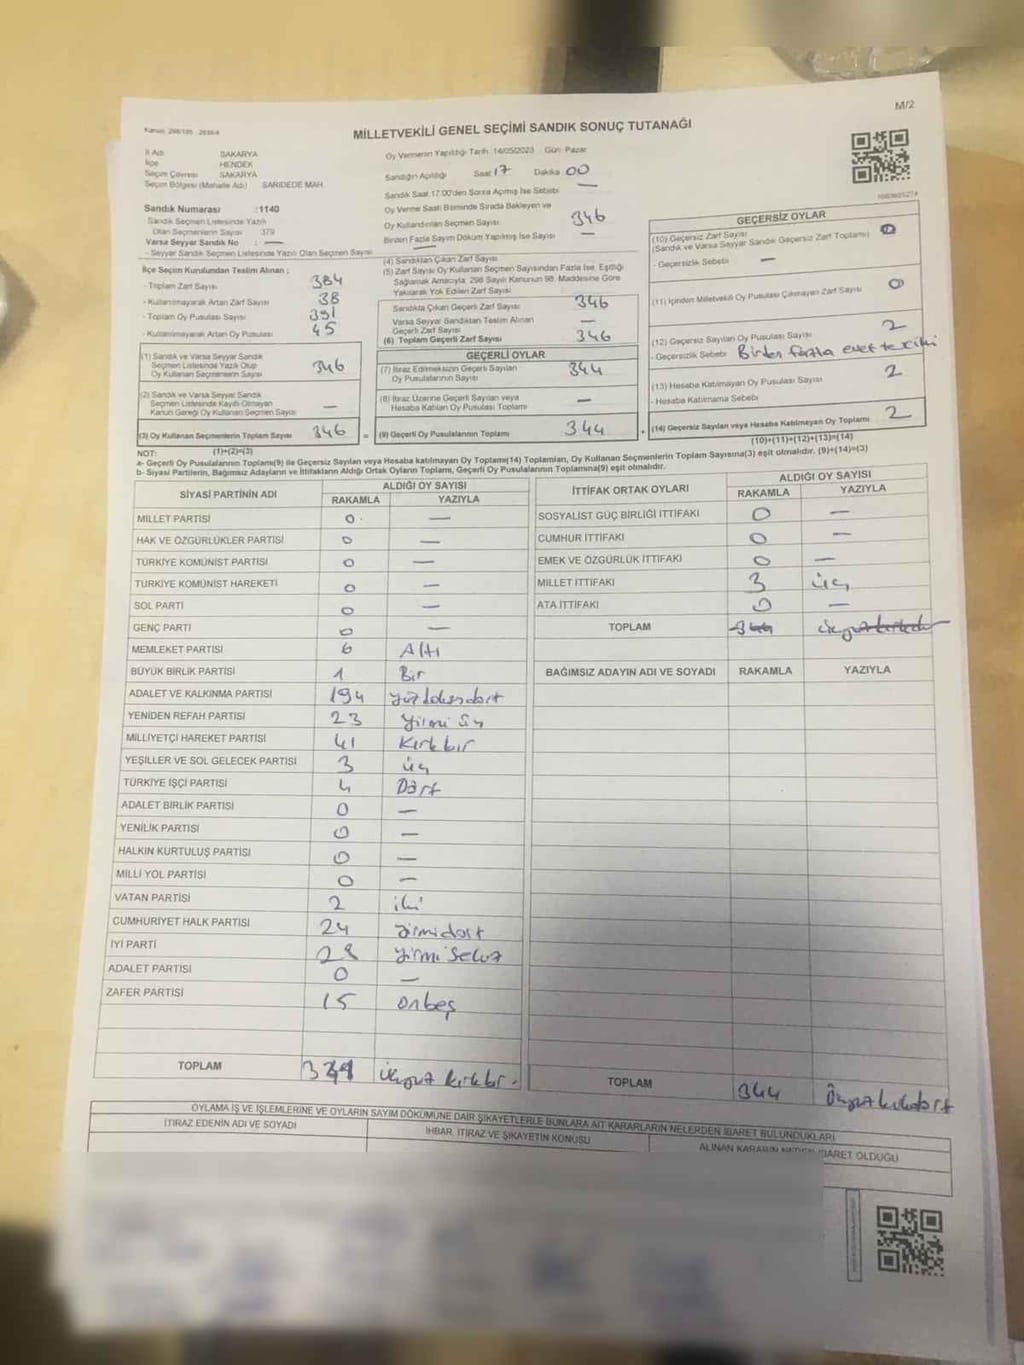 M/2
MİLLETVEKİLİ GENEL SEÇİMİ SANDIK SONUÇ TUTANAĞI
İl Adı SAKARYA
İlçe HENDEK
Seçim Çevresi SAKARYA
Seçim Bölgesi (Mahalle Adı) SARIDEDE MAH.
Sandık Numarası : 1140
Sandık Seçmen Listesinde Yazılı
Olan Seçmenlerin Sayısı 379
Varsa Seyyar Sandık No : —
- Seyyar Sandık Listesinde Yazılı Olan Seçmen Sayısı
İlçe Seçim Kurulundan Teslim Alınan ;
- Toplam Zarf Sayısı 384
- Kullanılmayarak Artan Zarf Sayısı 38
- Toplam Oy Pusulası Sayısı 391
- Kullanılmayarak Artan Oy Pusulası 45
(1) Sandık ve Varsa Seyyar Sandık
Seçmen Listesinde Yazılı Olup
Oy Kullanan Seçmenlerin Sayısı 346
(2) Sandık ve Varsa Seyyar Sandık
Seçmen Listesinde Kayıtlı Olmayan
Kanun Gereği Oy Kullanan Seçmen Sayısı —
(3) Oy Kullanan Seçmenlerin Toplam Sayısı 346
(1)+(2)=(3)
Oy Vermenin Yapıldığı Tarih: 14/05/2023 Gün: Pazar
Sandığın Açıldığı Saat 17 Dakika 00
Sandık Saat 17:00'den Sonra Açılmış İse Sebebi —
Oy Verme Saati Bitiminde Sırada Bekleyen ve
Oy Kullandırılan Seçmen Sayısı 346
Birden Fazla Sayım Döküm Yapılmış İse Sayısı —
(4) Sandıktan Çıkan Zarf Sayısı
(5) Zarf Sayısı Oy Kullanan Seçmen Sayısından Fazla İse, Eşitliği
Sağlamak Amacıyla; 298 Sayılı Kanunun 98. Maddesine Göre
Yakılarak Yok Edilen Zarf Sayısı
Sandıkta Çıkan Geçerli Zarf Sayısı 346
Varsa Seyyar Sandıktan Teslim Alınan
Geçerli Zarf Sayısı —
(6) Toplam Geçerli Zarf Sayısı 346
GEÇERLİ OYLAR
(7) İtiraz Edilmeksizin Geçerli Sayılan
Oy Pusulalarının Sayısı 344
(8) İtiraz Üzerine Geçerli Sayılan veya
Hesaba Katılan Oy Pusulası Toplamı —
= (9) Geçerli Oy Pusulalarının Toplamı 344
GEÇERSİZ OYLAR
(10) Geçersiz Zarf Sayısı
(Sandık ve Varsa Seyyar Sandık Geçersiz Zarf Toplamı)
- Geçersizlik Sebebi —
(11) İçinden Milletvekili Oy Pusulası Çıkmayan Zarf Sayısı 0
(12) Geçersiz Sayılan Oy Pusulası Sayısı 2
- Geçersizlik Sebebi Birden fazla evet tercihi
(13) Hesaba Katılmayan Oy Pusulası Sayısı 2
- Hesaba Katılmama Sebebi
+ (14) Geçersiz Sayılan veya Hesaba Katılmayan Oy Toplamı 2
(10)+(11)+(12)+(13)=(14)
NOT:
a- Geçerli Oy Pusulaları Toplamı(9) ile Geçersiz Sayılan veya Hesaba Katılmayan Oy Pusulaları Toplamı(14) Toplamları, Oy Kullanan Seçmenlerin Toplam Sayısına(3) eşit olmalıdır. (9)+(14)=(3)
b- Siyasi Partilerin, Bağımsız Adayların ve İttifakların Aldığı Ortak Oyların Toplamı, Geçerli Oy Pusulalarının Toplamına(9) eşit olmalıdır.
SİYASİ PARTİNİN ADI ALDIĞI OY SAYISI
RAKAMLA YAZIYLA
MİLLET PARTİSİ 0 —
HAK VE ÖZGÜRLÜKLER PARTİSİ 0 —
TÜRKİYE KOMÜNİST PARTİSİ 0 —
TÜRKİYE KOMÜNİST HAREKETİ 0 —
SOL PARTİ 0 —
GENÇ PARTİ 0 —
MEMLEKET PARTİSİ 6 Altı
BÜYÜK BİRLİK PARTİSİ 1 Bir
ADALET VE KALKINMA PARTİSİ 194 yüzdoksandört
YENİDEN REFAH PARTİSİ 23 Yirmi üç
MİLLİYETÇİ HAREKET PARTİSİ 41 Kırkbir
YEŞİLLER VE SOL GELECEK PARTİSİ 3 üç
TÜRKİYE İŞÇİ PARTİSİ 4 Dört
ADALET BİRLİK PARTİSİ 0 —
YENİLİK PARTİSİ 0 —
HALKIN KURTULUŞ PARTİSİ 0 —
MİLLİ YOL PARTİSİ 0 —
VATAN PARTİSİ 2 iki
CUMHURİYET HALK PARTİSİ 24 Yirmidört
İYİ PARTİ 28 Yirmi Sekiz
ADALET PARTİSİ 0 —
ZAFER PARTİSİ 15 onbeş
TOPLAM 341 üçyüz kırkbir.
İTTİFAK ORTAK OYLARI ALDIĞI OY SAYISI
RAKAMLA YAZIYLA
SOSYALİST GÜÇ BİRLİĞİ İTTİFAKI 0 —
CUMHUR İTTİFAKI 0 —
EMEK VE ÖZGÜRLÜK İTTİFAKI 0 —
MİLLET İTTİFAKI 3 üç
ATA İTTİFAKI 0 —
TOPLAM 344 üçyüzkırkdört
BAĞIMSIZ ADAYIN ADI VE SOYADI RAKAMLA YAZIYLA
TOPLAM 344 Üçyüzkırkdört
OYLAMA İŞ VE İŞLEMLERİNE VE OYLARIN SAYIM DÖKÜMÜNE DAİR ŞİKAYETLERLE BUNLARA AİT KARARLARIN NELERDEN İBARET BULUNDUKLARI
İTİRAZ EDENİN ADI VE SOYADI İHBAR, İTİRAZ VE ŞİKAYETİN KONUSU ALINAN KARARIN NEDEN İBARET OLDUĞU